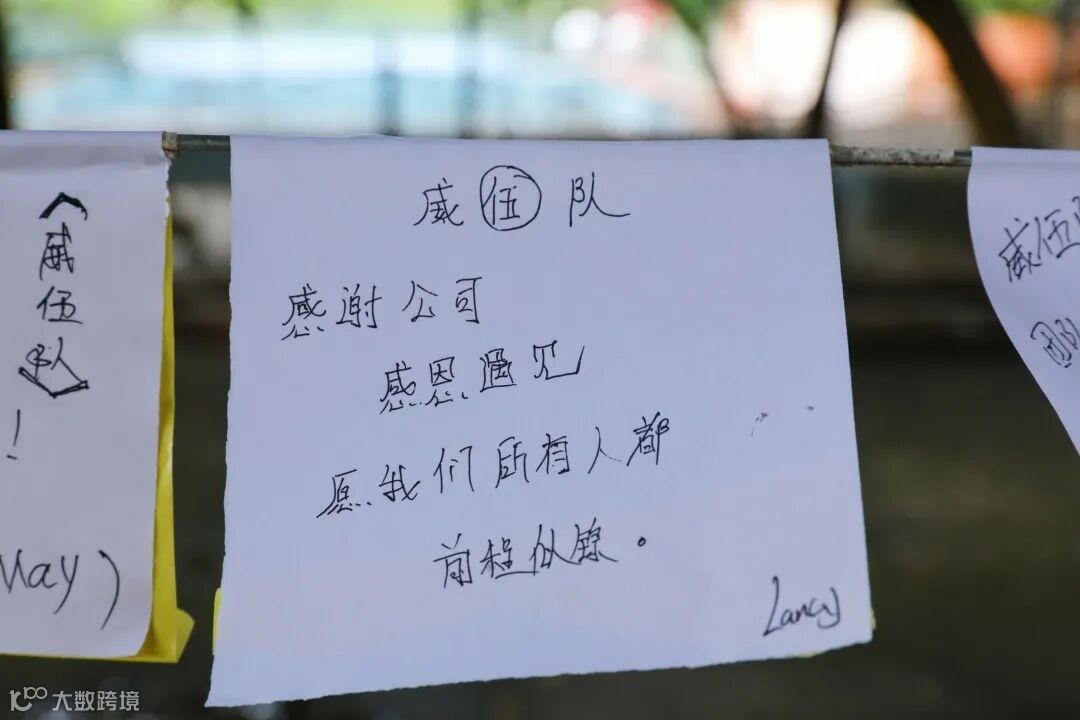 《威伍队》!
May)
威伍队
感谢公司
感恩遇见
愿我们所有人都
前程似锦。
Lancy
威伍队
团队
大数跨境